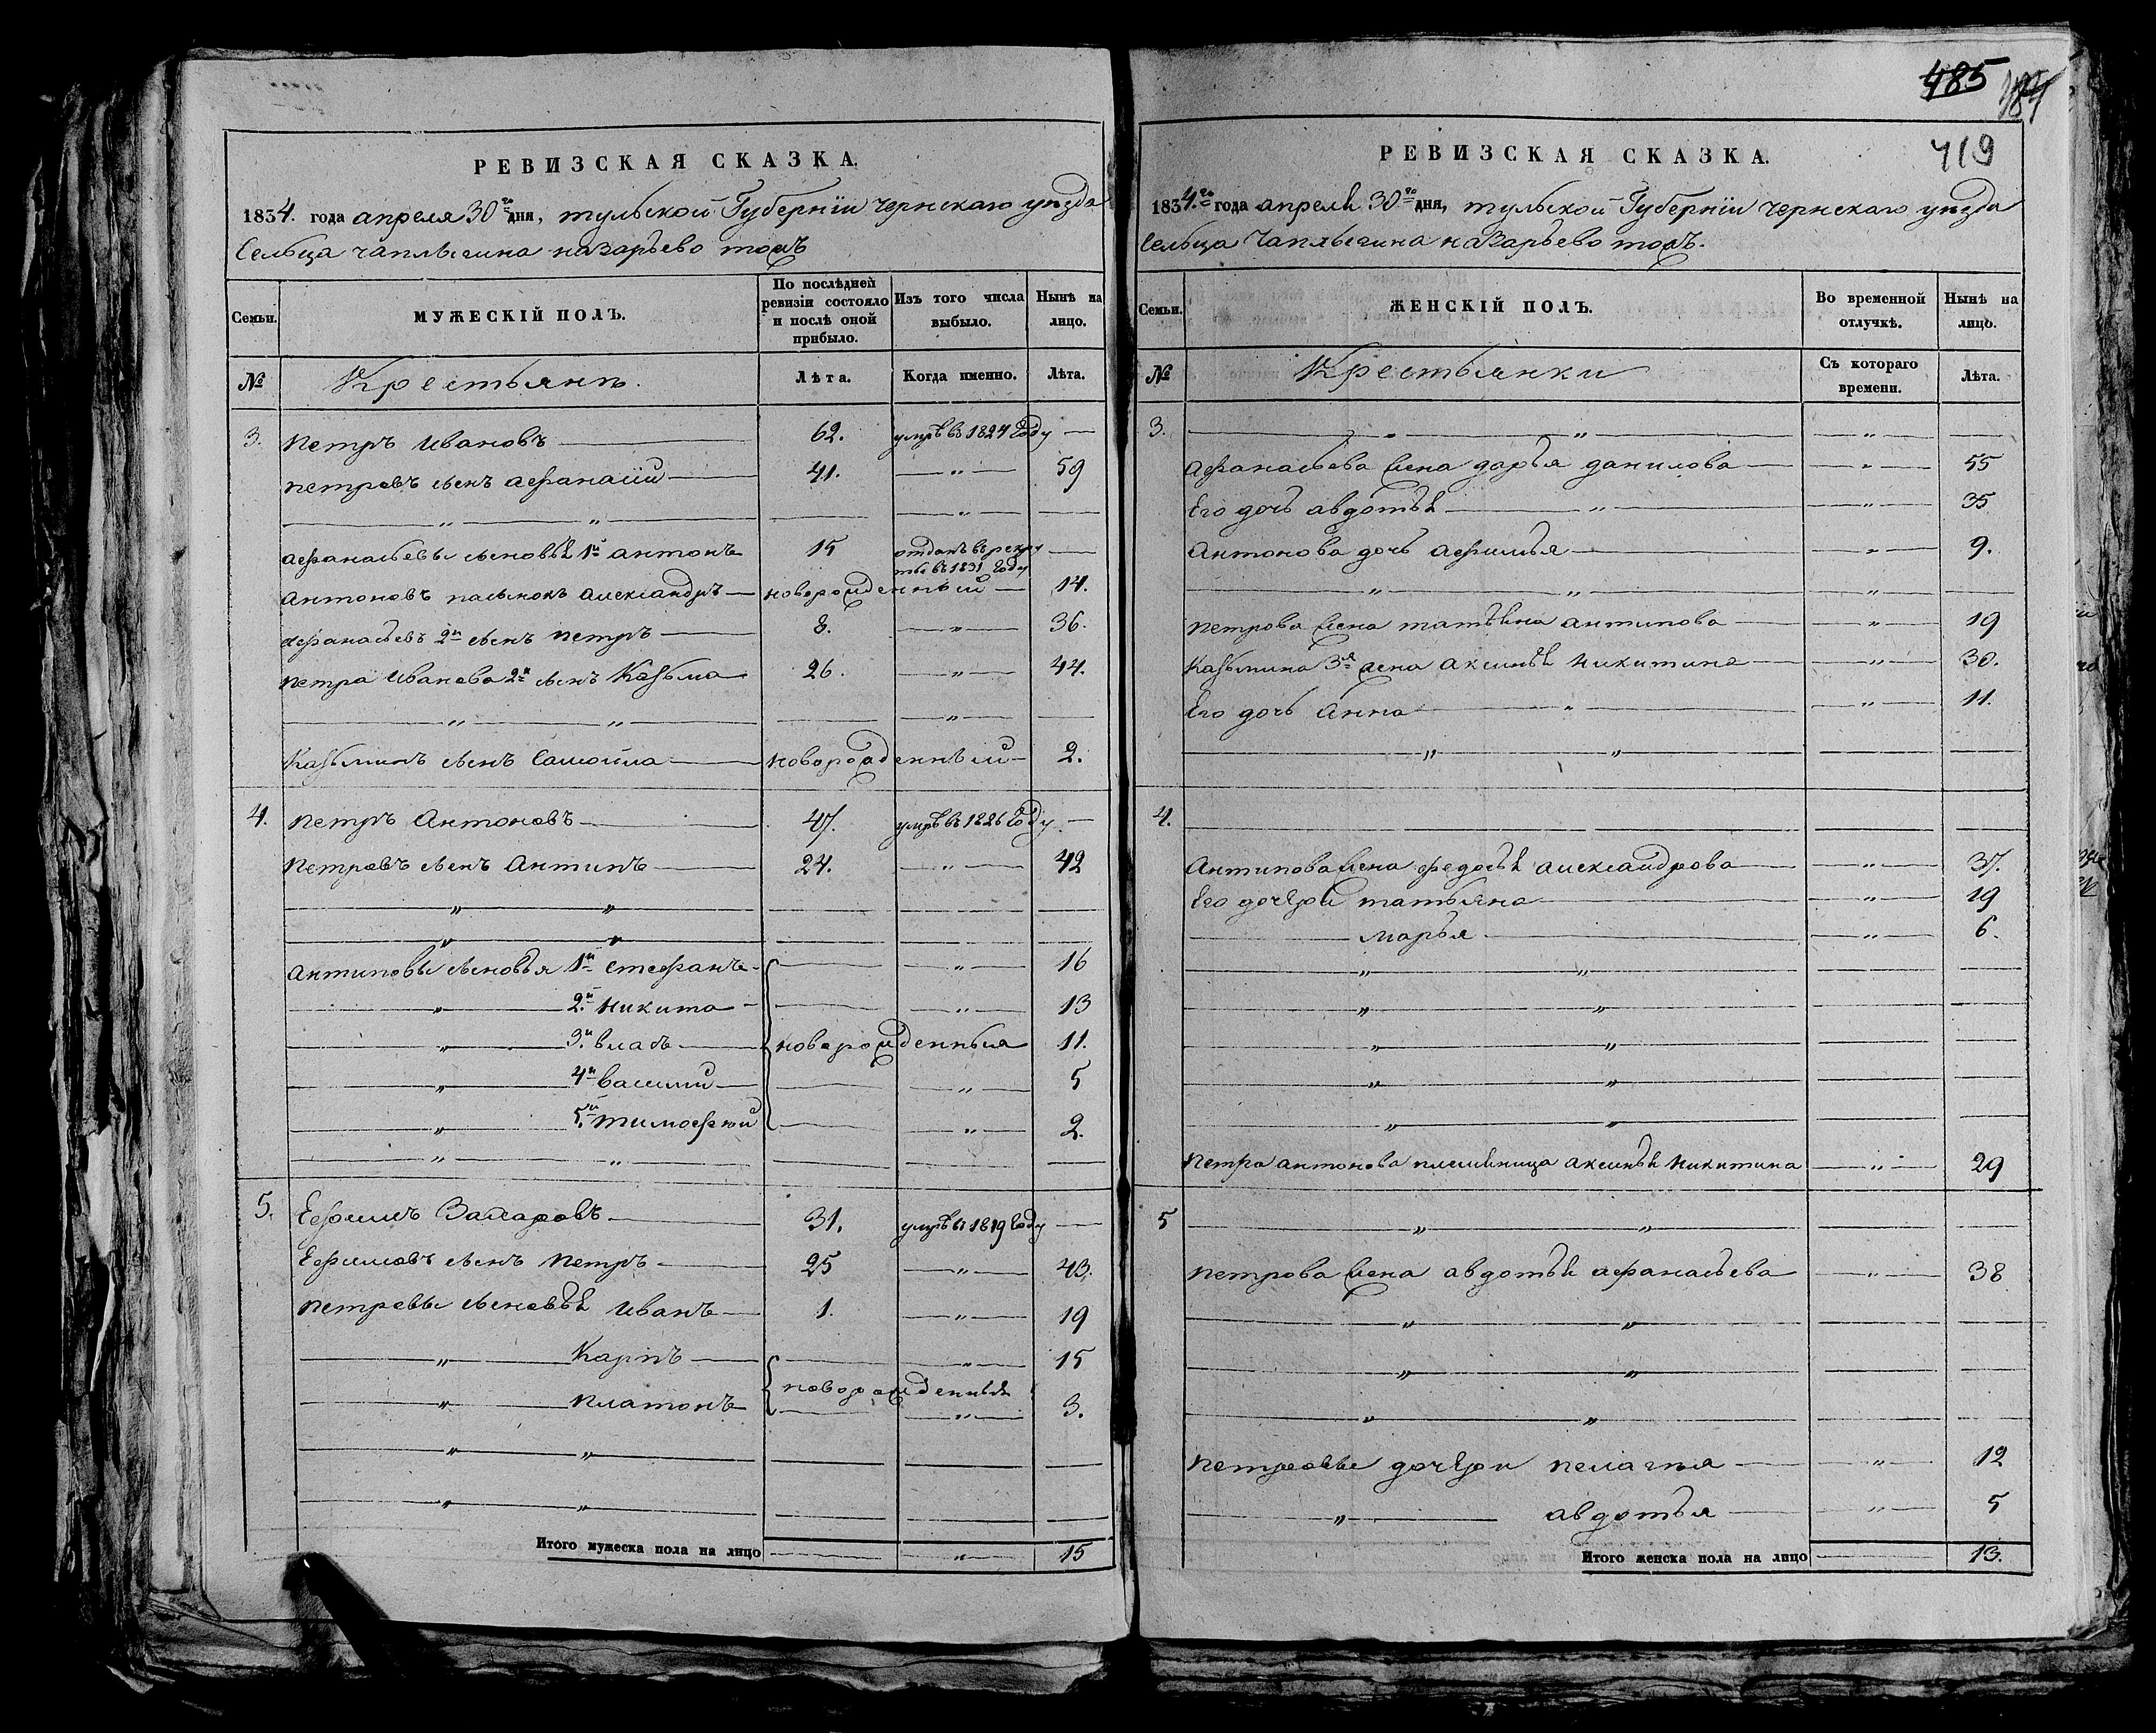 485
719
РЕВИЗСКАЯ СКАЗКА.
1834. года апреля 30го дня, тульской Губерніи чернскаго уѣзда
Сельца чаплыгина назарьево тожъ
Семьи.
МУЖЕСКІЙ ПОЛЪ.
По послѣдней ревизіи состояло и послѣ оной прибыло.
Изъ того числа выбыло.
Нынѣ на лицо.
№
Крестьянъ.
Лѣта.
Когда именно.
Лѣта.
3. петръ ивановъ 62. умръ въ 1824 Году
петровъ сынъ афанасій 41. 59
афанасьевы сыновья 1й антонъ 15 отданъ в рекруты въ 1831 Году
антоновъ пасынокъ александръ новорожденный 14.
афанасьевъ 2й сынъ петръ 8. 36.
петра иванова 2й сынъ Казьма 26. 44.
Казьминъ сынъ Самойла новорожденный 2.
4. петръ Антоновъ 47. умръ въ 1826 Году
петровъ сынъ Антипъ 24. 42
антиповы сыновья 1й стефанъ 16
2й никита 13
3й власъ новорожденныя 11.
4й василий 5
5й тимофѣй 2.
5. Ефимъ Захаровъ 31. умръ в 1819 Году
Ефимовъ сынъ петръ 25 43.
петровы сыновья иванъ 1. 19
Карпъ 15
новорожденныя
платонъ 3.
Итого мужеска пола на лицо 15
РЕВИЗСКАЯ СКАЗКА.
1834.го года апреля 30го дня, тульской Губерніи чернскаго уѣзда
Сельца Чаплыгина назарьево тожъ.
Семьи.
ЖЕНСКІЙ ПОЛЪ.
Во временной отлучкѣ.
Нынѣ на лицо.
№
Крестьянки
Съ котораго времени.
Лѣта.
3.
афанасьева жена дарья данилова 55
Его дочь авдотья 35
Антонова дочь афимья 9.
петрова жена татьяна антипова 19
Казьмина 3я жена аксинья никитина 30.
Его дочь анна 11.
4.
Антипова жена федосья александрова 37.
Его дочери татьяна 19
марья 6.
петра антонова племяница аксинья никитина 29
5
петрова жена авдотья афанасьева 38
петровы дочери пелагия 12
авдотья 5
Итого женска пола на лицо 13.